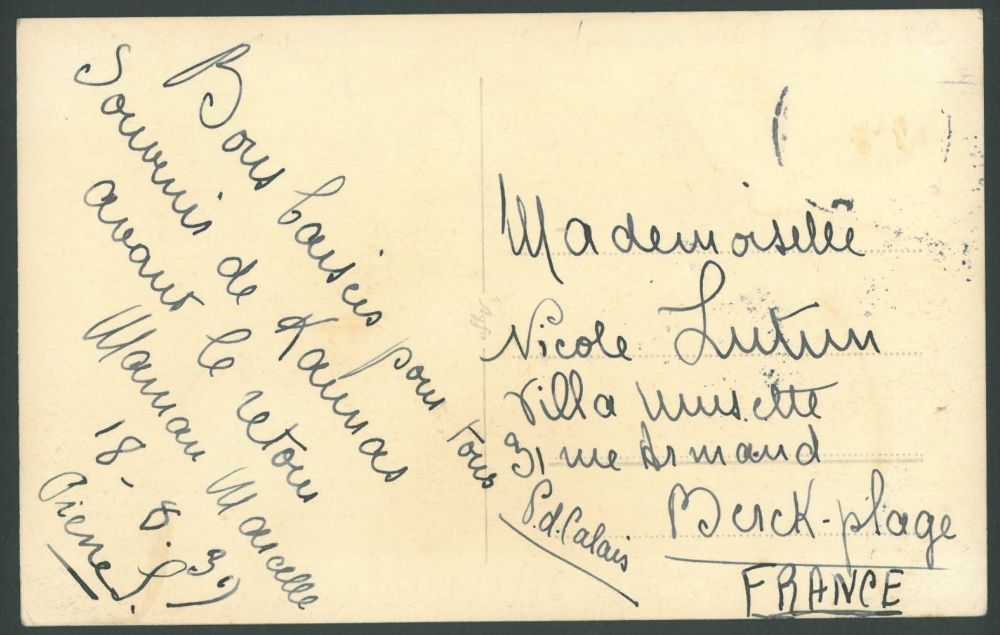 Bons baisers pour tous
Souvenir de Kaunas
avant le retour
Maman Marcelle
18-8.39
Pierre
Mademoiselle
Nicole Lutun
Villa Musette
31 rue Armand
Berck-plage
P.d.Calais
FRANCE
Agfa